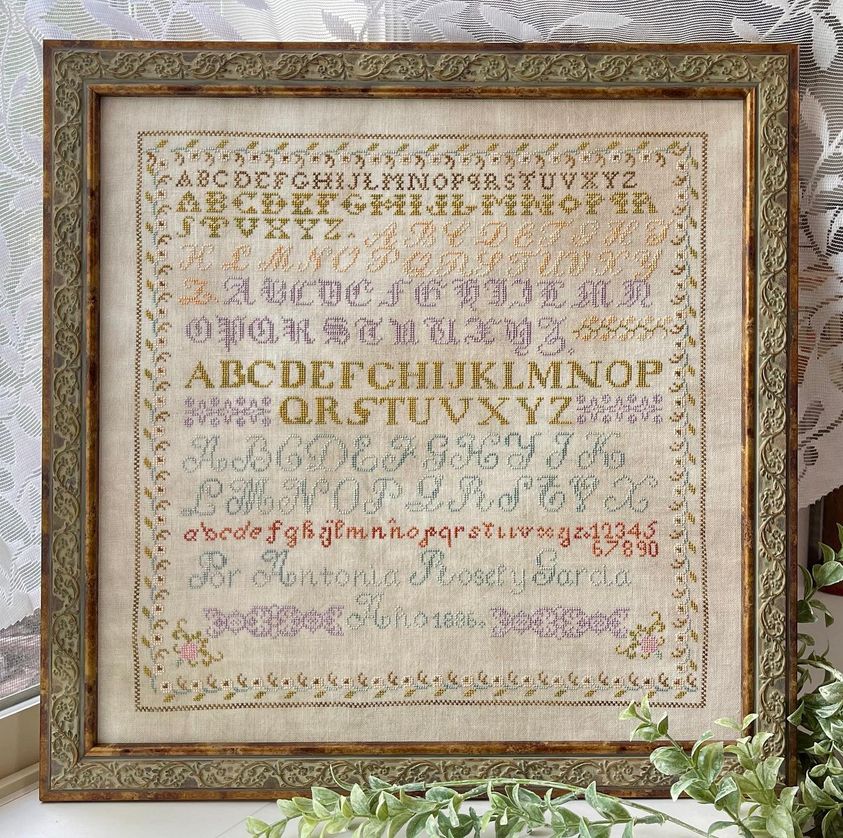 ABCDEFGHIJLMNOPQRSTUVXYZ
ABCDEFGHIJLMNOPQR
STUVXYZ. ABCDEFGHI
KLMNOPQRSTUVXY
Z. ABCDEFGHIJLMN
OPQRSTUVXYZ.
ABCDEFGHIJKLMNOP
QRSTUVXYZ
ABCDEFGHYJK
LMNOPQRSTVX
abcdefghijlmnñopqrstuvxyz.12345
67890
Pr Antonia Rosel y Garcia
Año 1886.